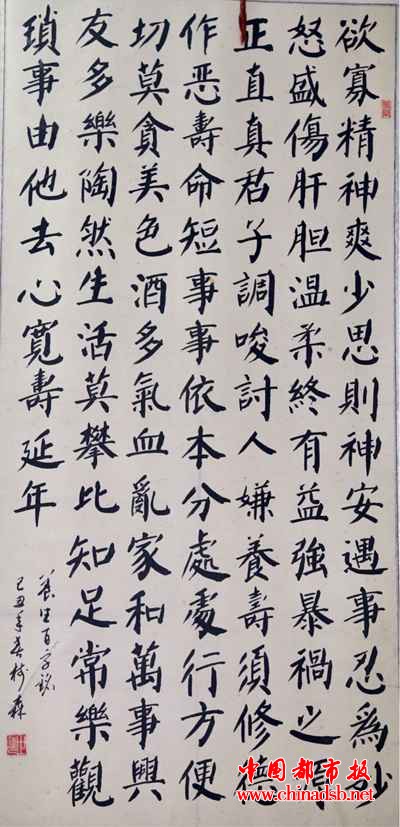 欲寡精神爽少思則神安遇事忍為妙
怒盛傷肝胆溫柔終有益強暴禍之源
正直真君子調唆討人嫌養壽須修德
作恶壽命短事事依本分處處行方便
切莫貪美色酒多氣血亂家和萬事興
友多樂陶然生活莫攀比知足常樂觀
瑣事由他去心寬壽延年
養生百字銘
己丑年春树森
中国都市报
www.chinadsb.net